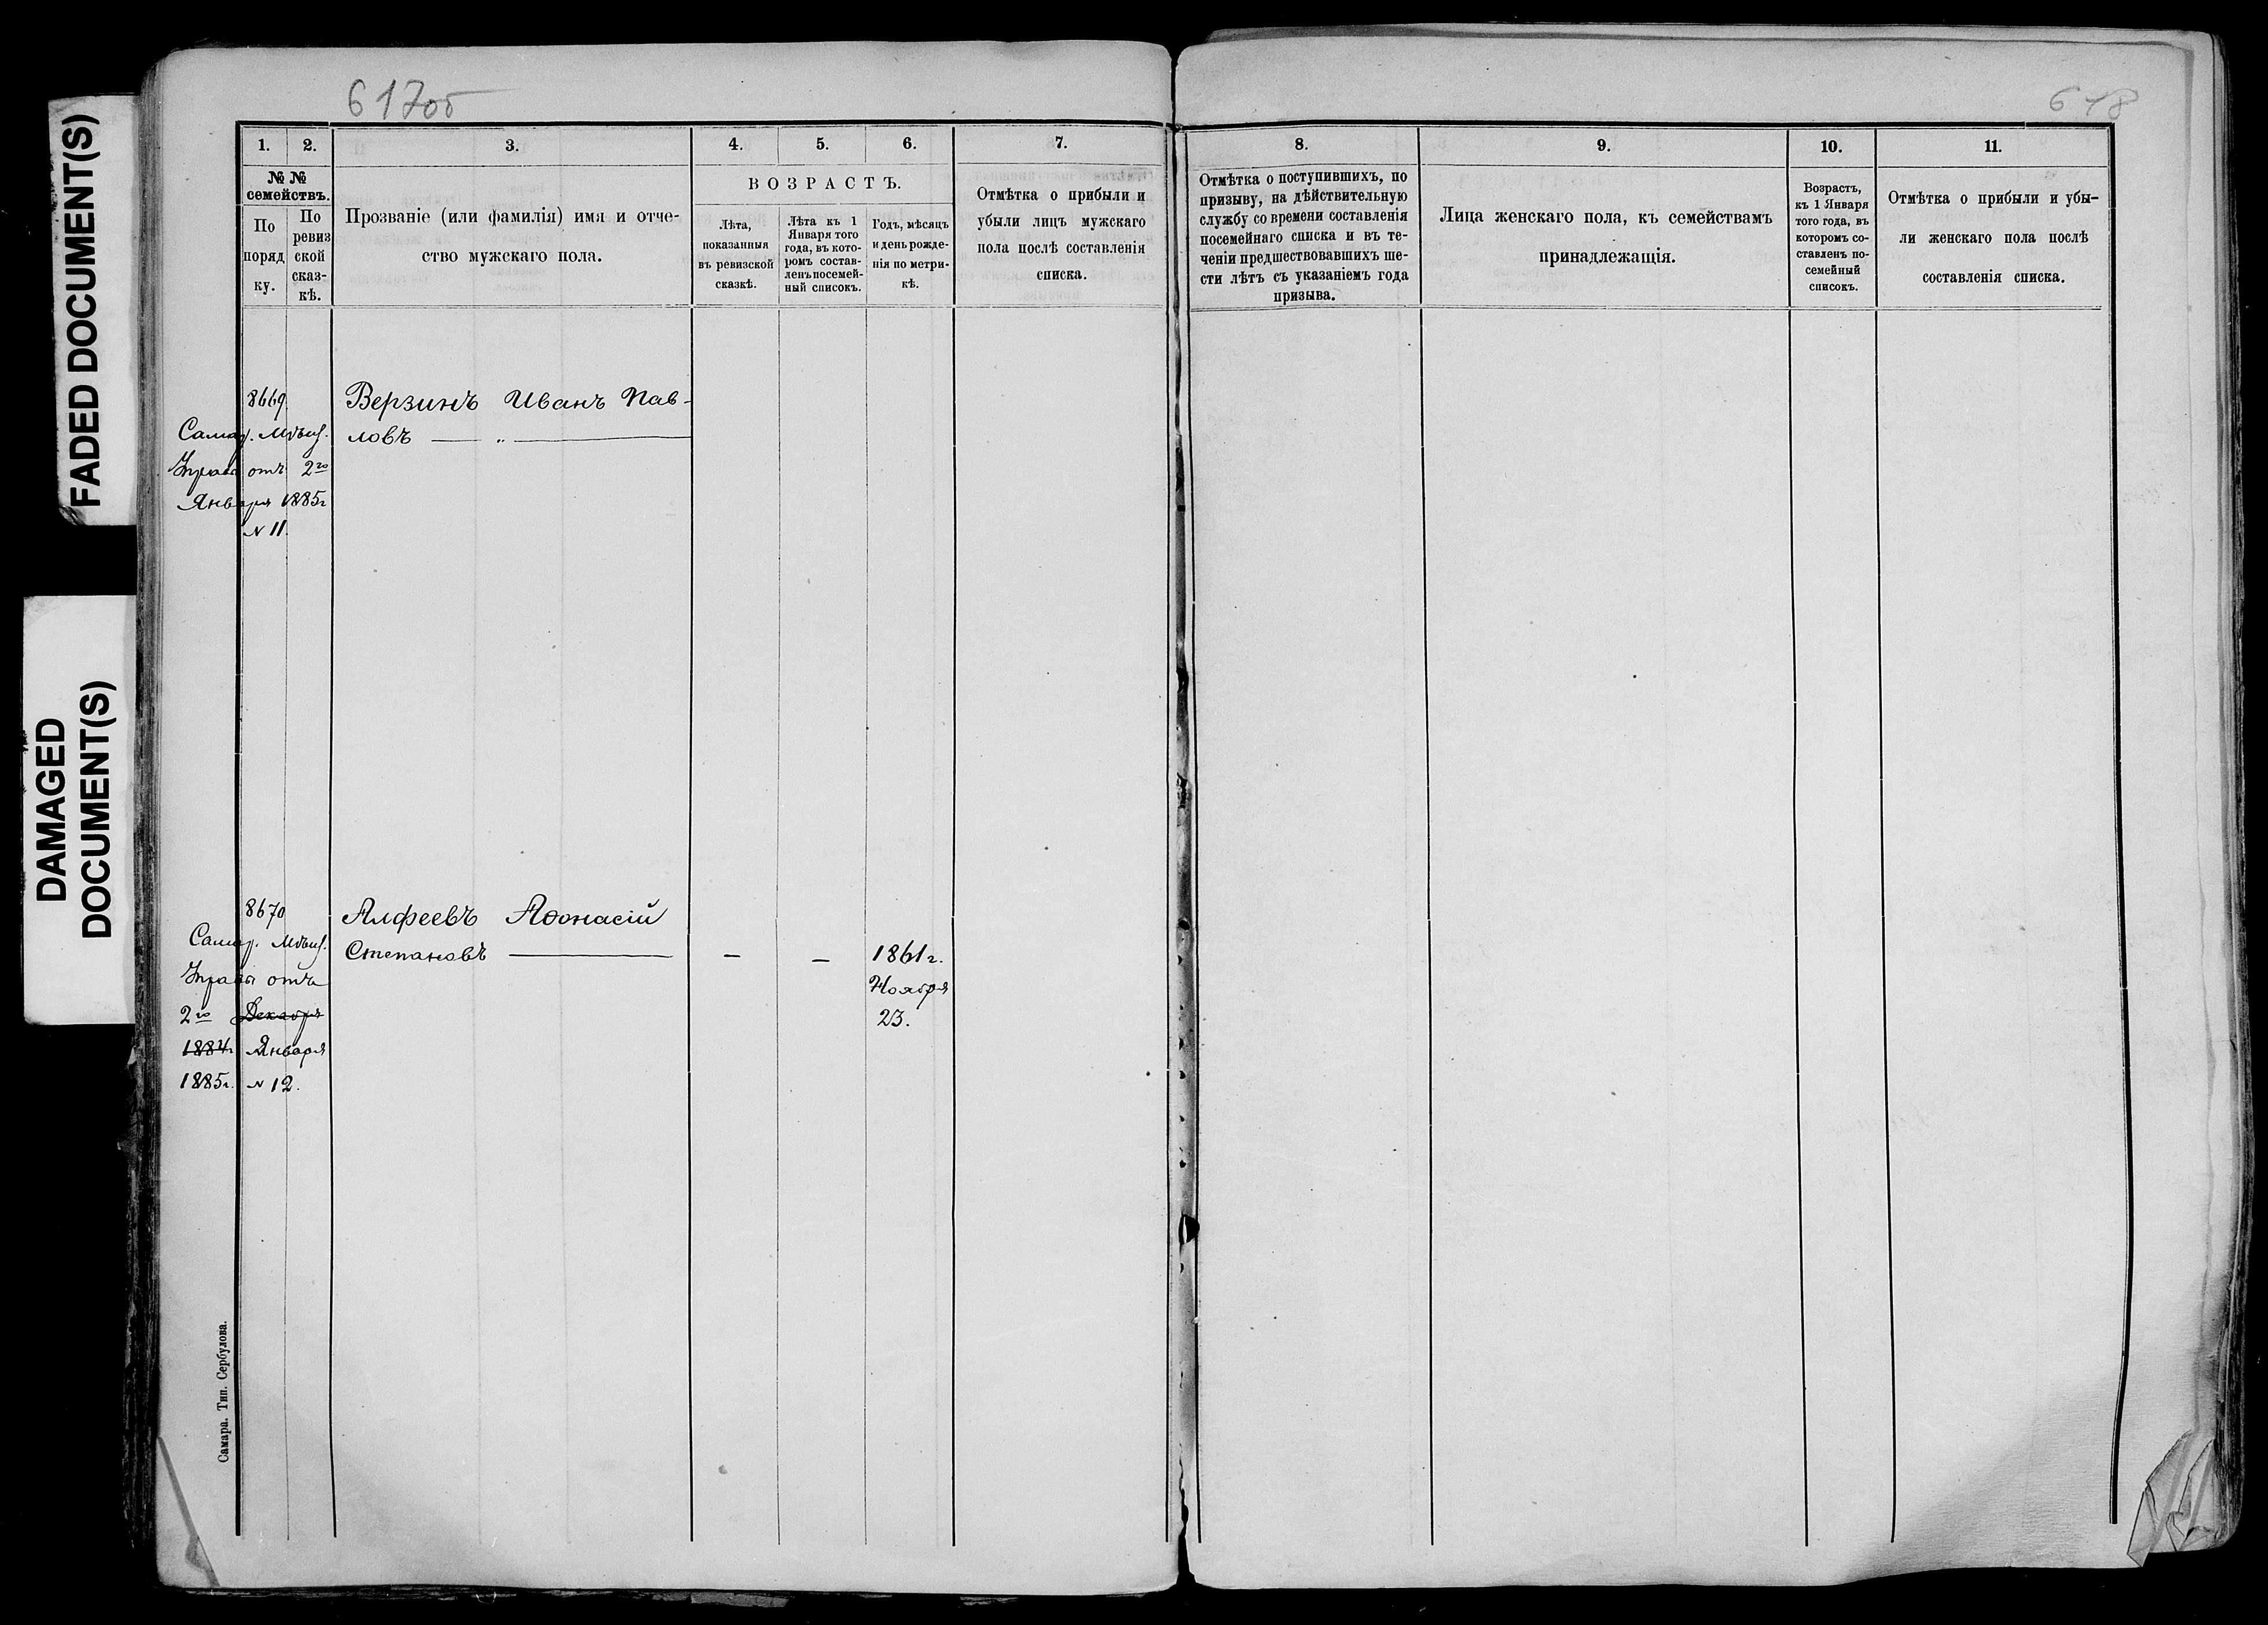 FADED DOCUMENT(S)
DAMAGED
DOCUMENT(S)
617об
618
1.
2.
3.
4.
5.
6.
7.
№ №
семействъ.
По
поряд
ку.
По
ревиз
ской
сказ-
кѣ.
Прозваніе (или фамилія) имя и отче-
ство мужскаго пола.
ВОЗРАСТЪ.
Лѣта,
показанныя
въ ревизской
сказкѣ.
Лѣта къ 1
Января того
года, въ кото-
ромъ состав-
ленъ посемей-
ный списокъ.
Годъ, мѣсяцъ
и день рожде-
нія по метри-
кѣ.
Отмѣтка о прибыли и
убыли лицъ мужскаго
пола послѣ составленія
списка.
8669.
Верзинъ Иванъ Пав-
Самар. Мѣщ.
ловъ — „ —
Управы отъ 2го
Января 1885г
№ 11.
8670
Алфеевъ Аѳонасій
Самар. Мѣщ.
Степановъ —
—
—
1861г.
Управы отъ
Ноября
2го Декабря
23.
1884г Января
1885г. № 12.
Самара. Тип. Сербулова.
8.
9.
10.
11.
Отмѣтка о поступившихъ, по
призыву, на дѣйствительную
службу со времени составленія
посемейнаго списка и въ те-
ченіи предшествовавшихъ ше-
сти лѣтъ съ указаніемъ года
призыва.
Лица женскаго пола, къ семействамъ
принадлежащія.
Возрастъ,
къ 1 Января
того года, въ
которомъ со-
ставленъ по-
семейный
списокъ.
Отмѣтка о прибыли и убы-
ли женскаго пола послѣ
составленія списка.